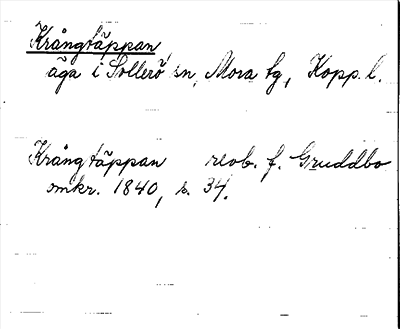 Krångtäppan
äga i Sollerö sn, Mora tg, Kopp. l.
Krångtäppan reob. f. Gruddbo
smkr. 1840, s. 34.